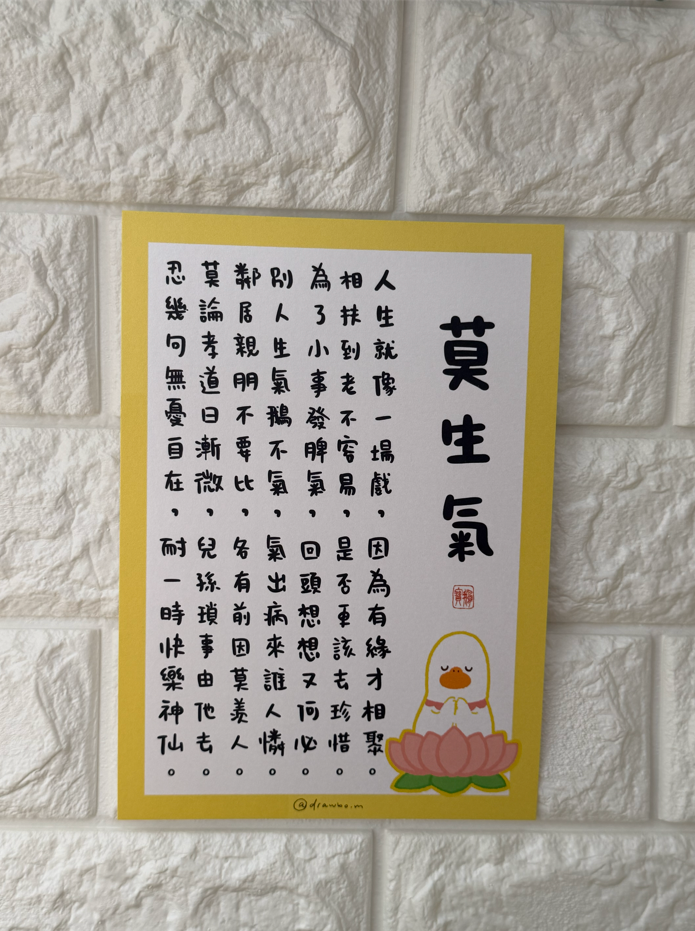 莫生氣
人生就像一場戲，因為有緣才相聚。
相扶到老不容易，是否更該去珍惜。
為了小事發脾氣，回頭想想又何必。
別人生氣鵝不氣，氣出病來誰人憐。
鄰居親朋不要比，各有前因莫羨人。
莫論孝道日漸微，兒孫瑣事由他去。
忍幾句無憂自在，耐一時快樂神仙。
@drawho.m